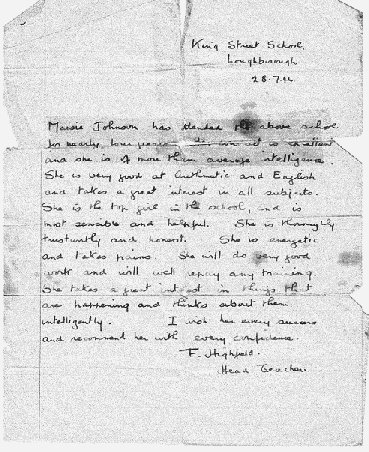 King Street School,
Loughborough
28.7.
Johnson has attended the above school
for nearly four years. Her conduct is excellent
and she is of more than average intelligence.
She is very good at Arithmetic and English
and takes a great interest in all subjects.
She is the top girl in the school, and is
most sensible and helpful. She is thoroughly
trustworthy and honest. She is energetic
and takes pains. She will do very good
work and will well repay any training.
She takes a great interest in things that
are happening and thinks about them
intelligently. I wish her every success
and recommend her with every confidence.
F. Highfield.
Head Teacher.